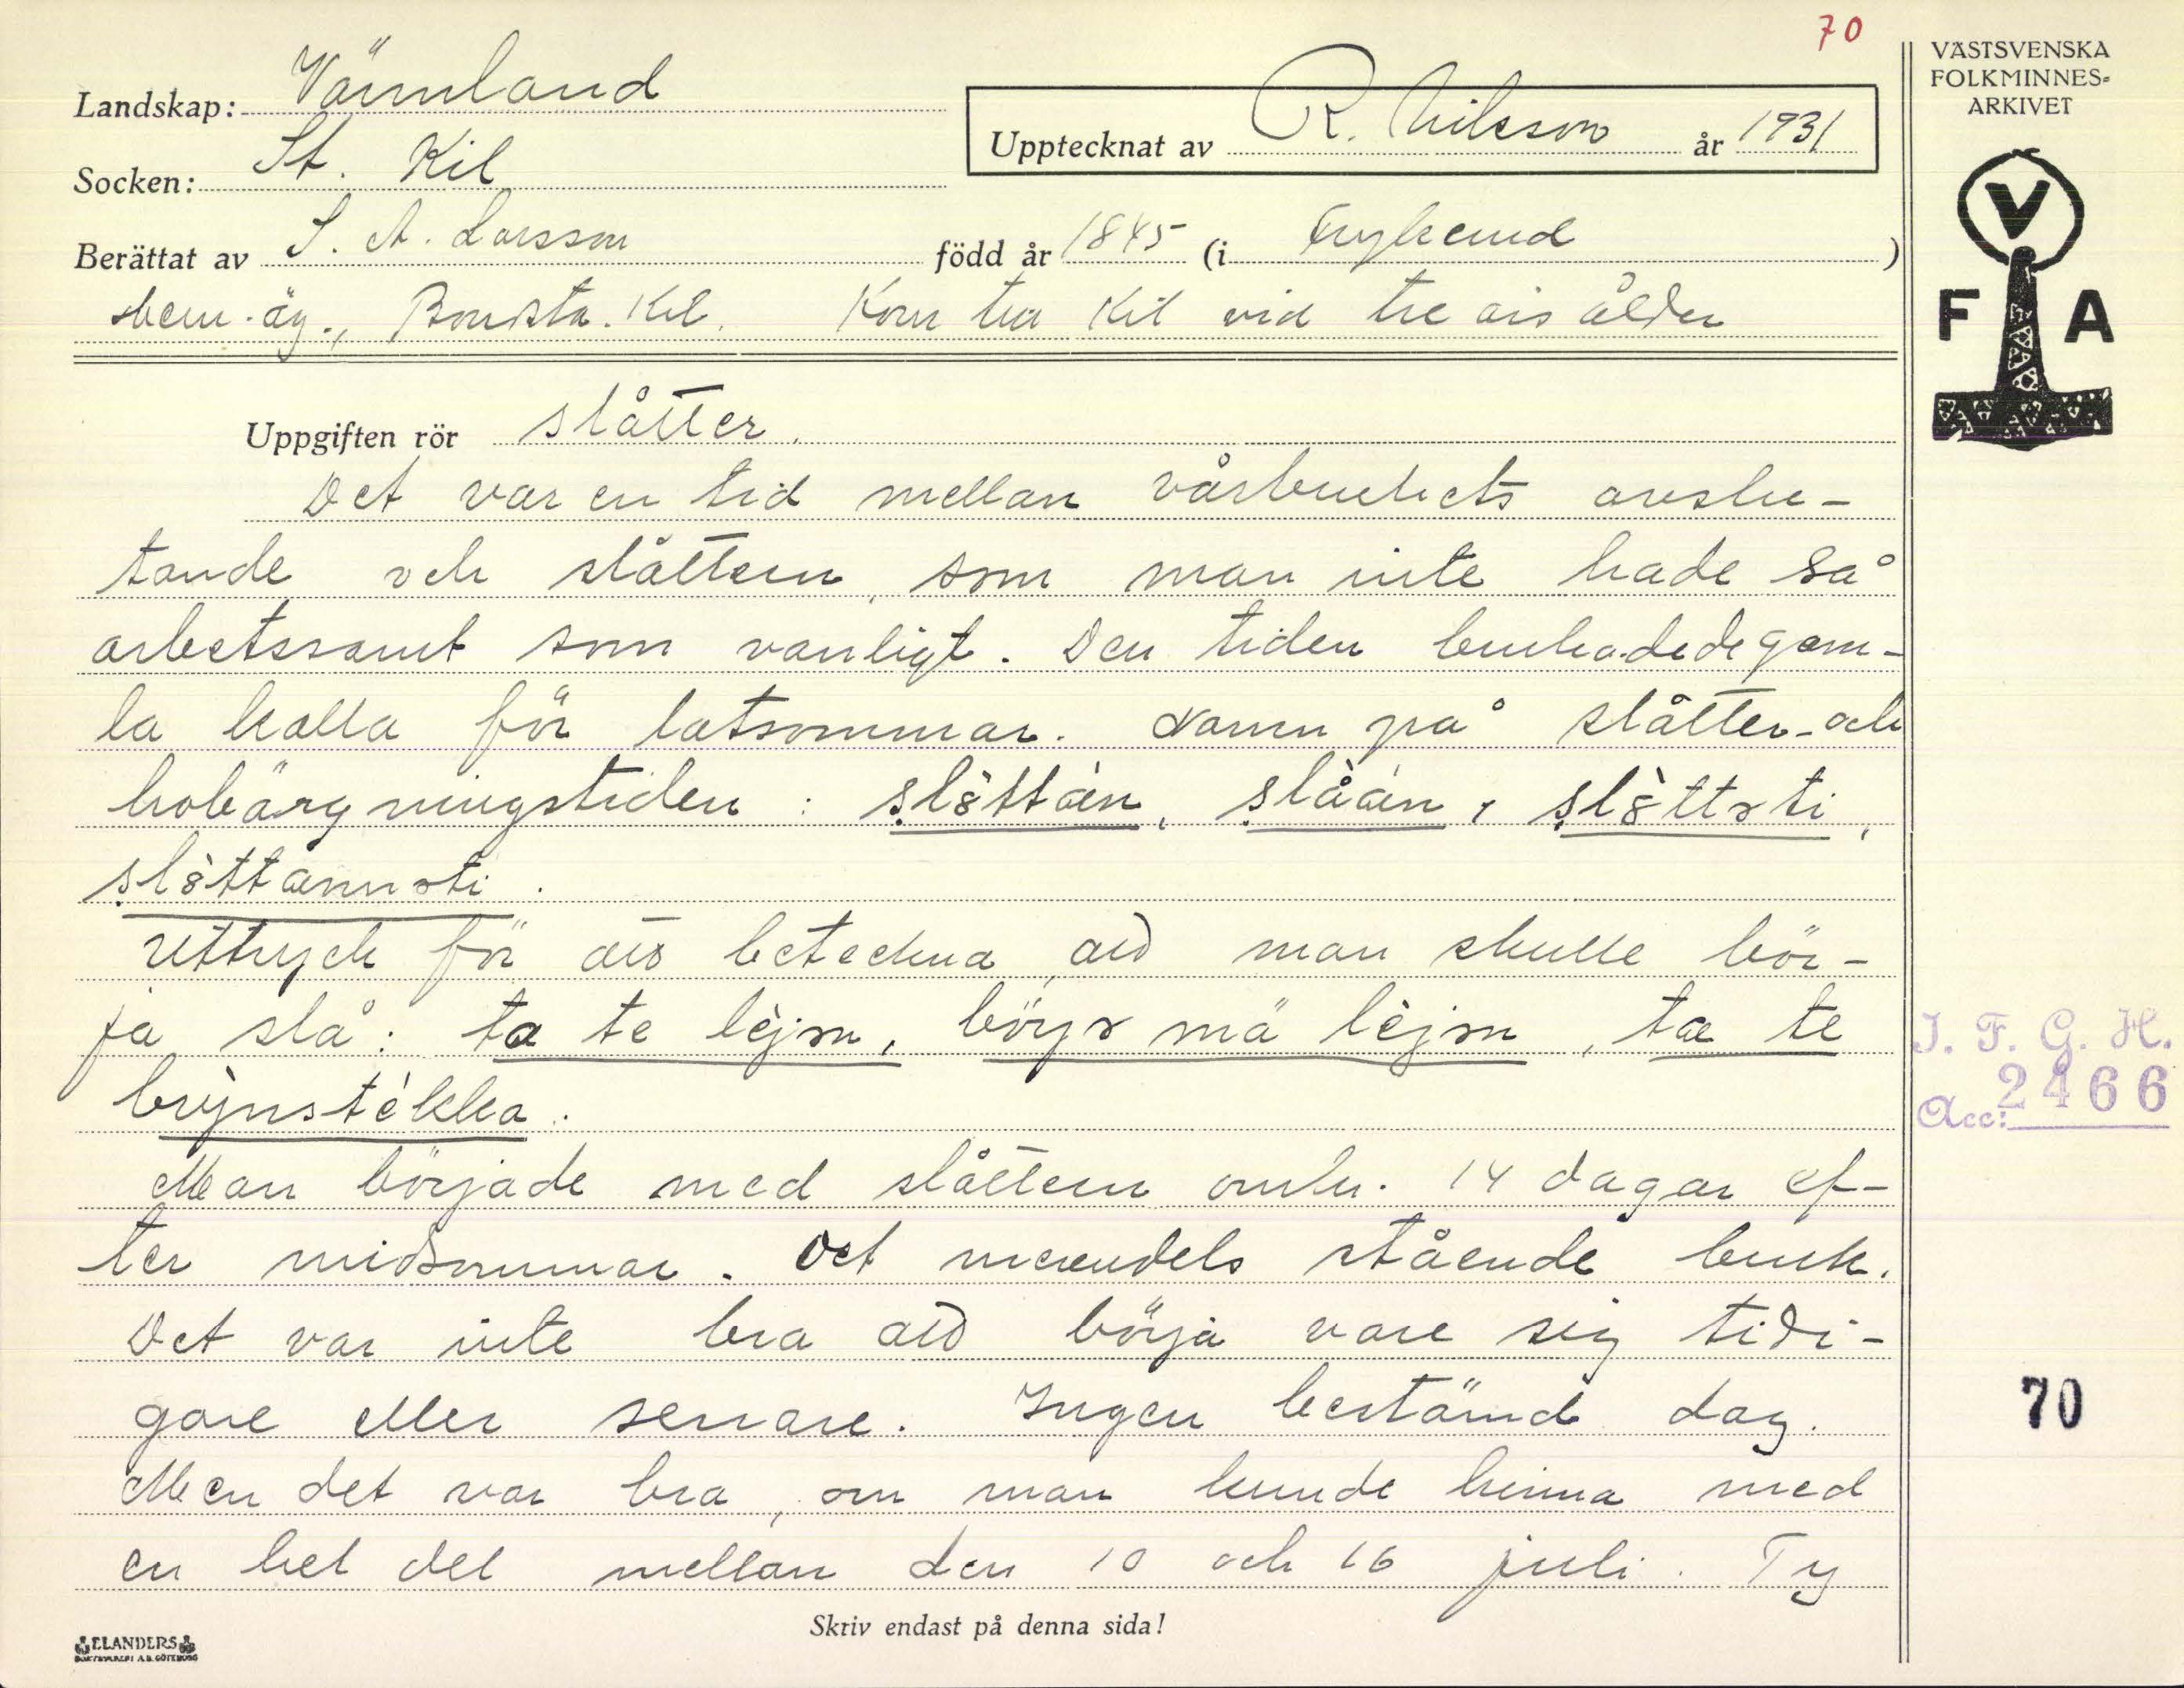 70
VÄSTSVENSKA
FOLKMINNES-
ARKIVET
Landskap: Värmland
Upptecknat av R. Nilsson år 1931
Socken: St. Kil
Berättat av S. A. Larsson född år 1845 (i Frykerud)
hem.äg., Kil. Kom till Kil vid tre års ålder
V
F A
Uppgiften rör slåtter.
Det var en tid mellan vårbrukets avslu-
tande och slåttern, som man inte hade så
arbetssamt som vanligt. Den tiden brukade de gam-
la kalla för latsommar. Namn på slåtter- och
höbärgningstiden: slòttan, slåan, slòttsti,
slòttannsti.
Uttryck för att beteckna, att man skulle bör-
ja slå: ta te lejsn, börjs mä lejsn, ta te
brynstekka.
Man började med slåttern omkr. 14 dagar ef-
ter midsommar. Det merendels stående bruk.
Det var inte bra att börja vare sig tidi-
gare eller senare. Ingen bestämd dag.
Men det var bra, om man kunde hinna med
en hel del mellan den 10 och 16 juli. Ty
I. F. G. H.
Acc: 2466
70
Skriv endast på denna sida!
ELANDERS
BOKTRYCKERI A.B. GÖTEBORG